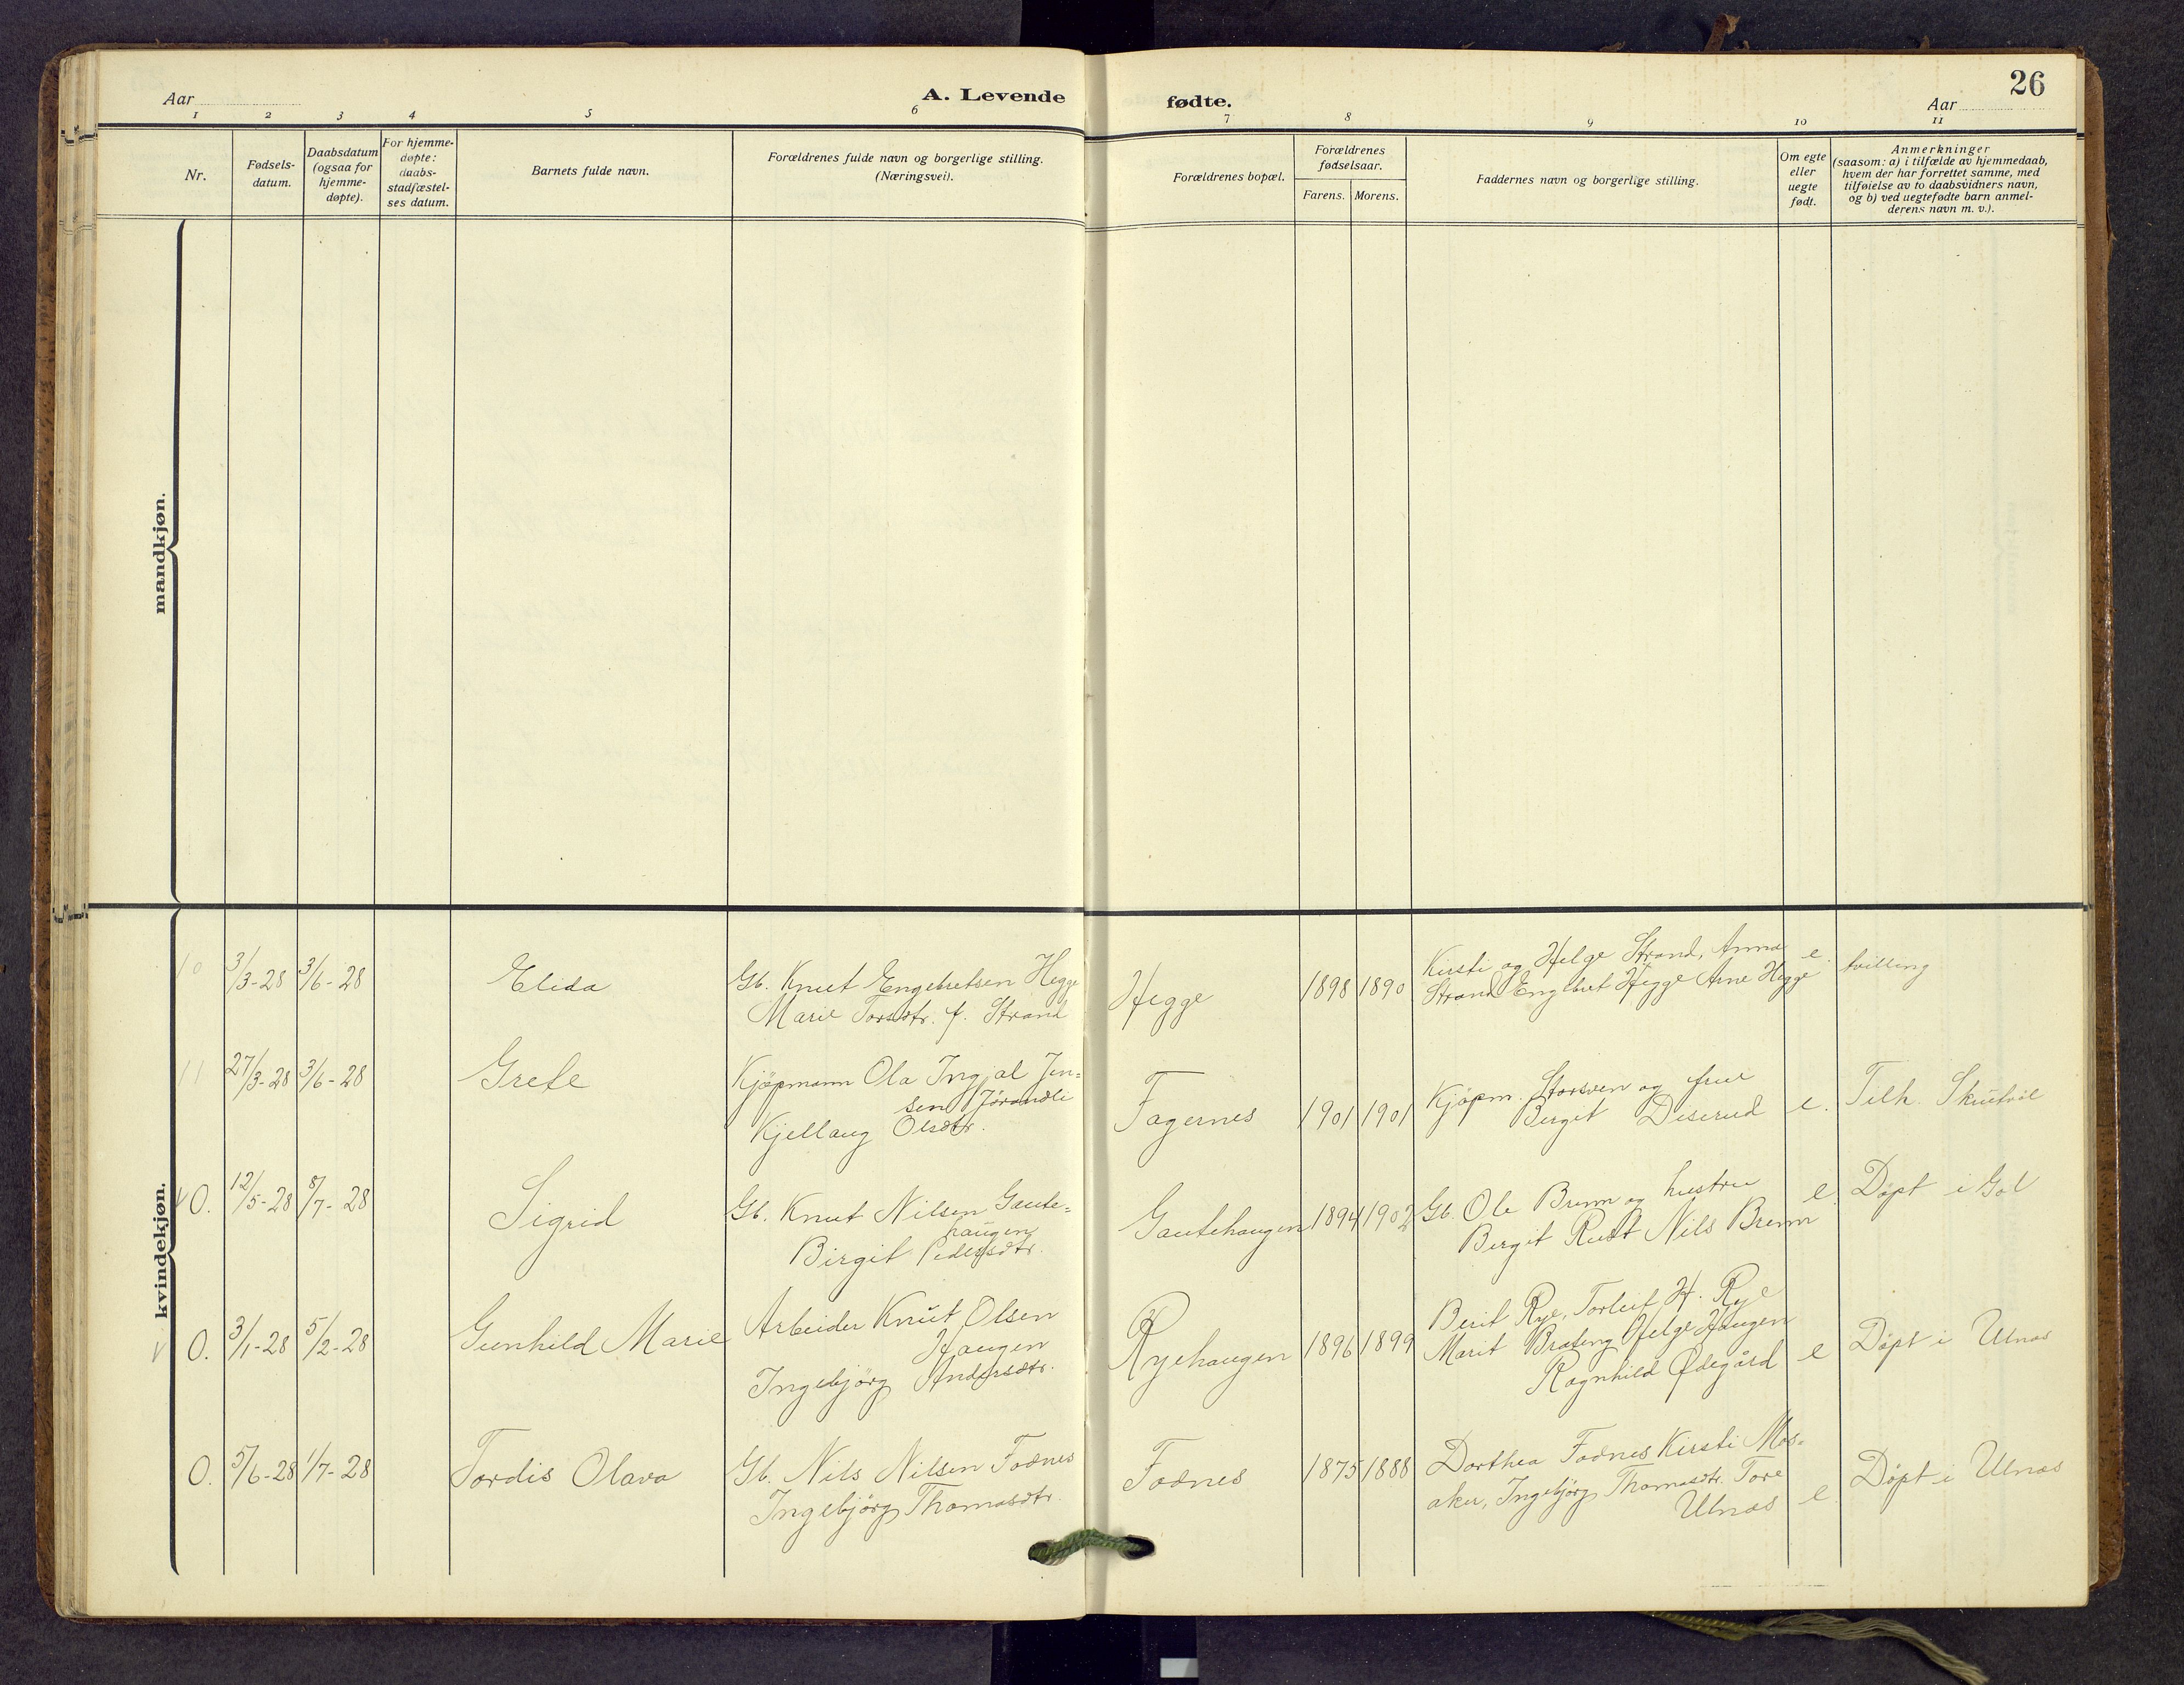 26
Aar
A. Levende
fødte.
Aar
1 2 3 4 5 6 7 8 9 10 11
Nr.
Fødsels-
datum.
Daabsdatum
(ogsaa for
hjemme-
døpte).
For hjemme-
døpte:
daabs-
stadfæstel-
ses datum.
Barnets fulde navn.
Forældrenes fulde navn og borgerlige stilling.
(Næringsvei).
Forældrenes bopæl.
Forældrenes
fødselsaar.
Farens. Morens.
Faddernes navn og borgerlige stilling.
Om egte
eller
uegte
født.
Anmerkninger
(saasom: a) i tilfælde av hjemmedaab,
hvem der har forrettet samme, med
tilføielse av to daabsvidners navn,
og b) ved uegtefødte barn anmel-
derens navn m. v.).
mandkjøn.
kvindekjøn.
10 3/3-28 3/6-28 Elida
Gb. Knut Engebretsen Hegge
Marie Torsdtr. f. Strand
Hegge 1898 1890
Kirsti og Helge Strand, Anna
Strand Engebret Hegge Arne Hegge
e. tvilling
11 27/3-28 3/6-28 Grete
Kjøpmann Ola Ingjal Jen=
sen Jørandli
Kjellaug Olsdtr.
Fagernes 1901 1901
Kjøpm. Storsven og frue
Birgit Diserud
e. Tilh. Skutvol
0. 12/5-28 8/7-28 Sigrid
Gb. Knut Nilsen Gaute=
haugen
Birgit Pedersdtr.
Gautehaugen 1894 1902
Gb. Ole Brenn og hustru
Birgit Rust Nils Brenn
e. Døpt i Gol
V 0. 3/1-28 5/2-28 Gunhild Marie
Arbeider Knut Olsen
Haugen
Ingebjørg Andersdtr.
Ryehaugen 1896 1899
Berit Rye, Torleif H. Rye
Marit Brateng Helge Haugen
Ragnhild Ødegård
e Døpt i Ulnes
0. 5/6-28 1/7-28 Tordis Olava
Gb. Nils Nilsen Fodnes
Ingebjørg Thomasdtr.
Fodnes 1875 1888
Dorthea Fodnes Kirsti Mos-
aker, Ingebjørg Thomasdtr. Tore
Ulnes
e. Døpt i Ulnes